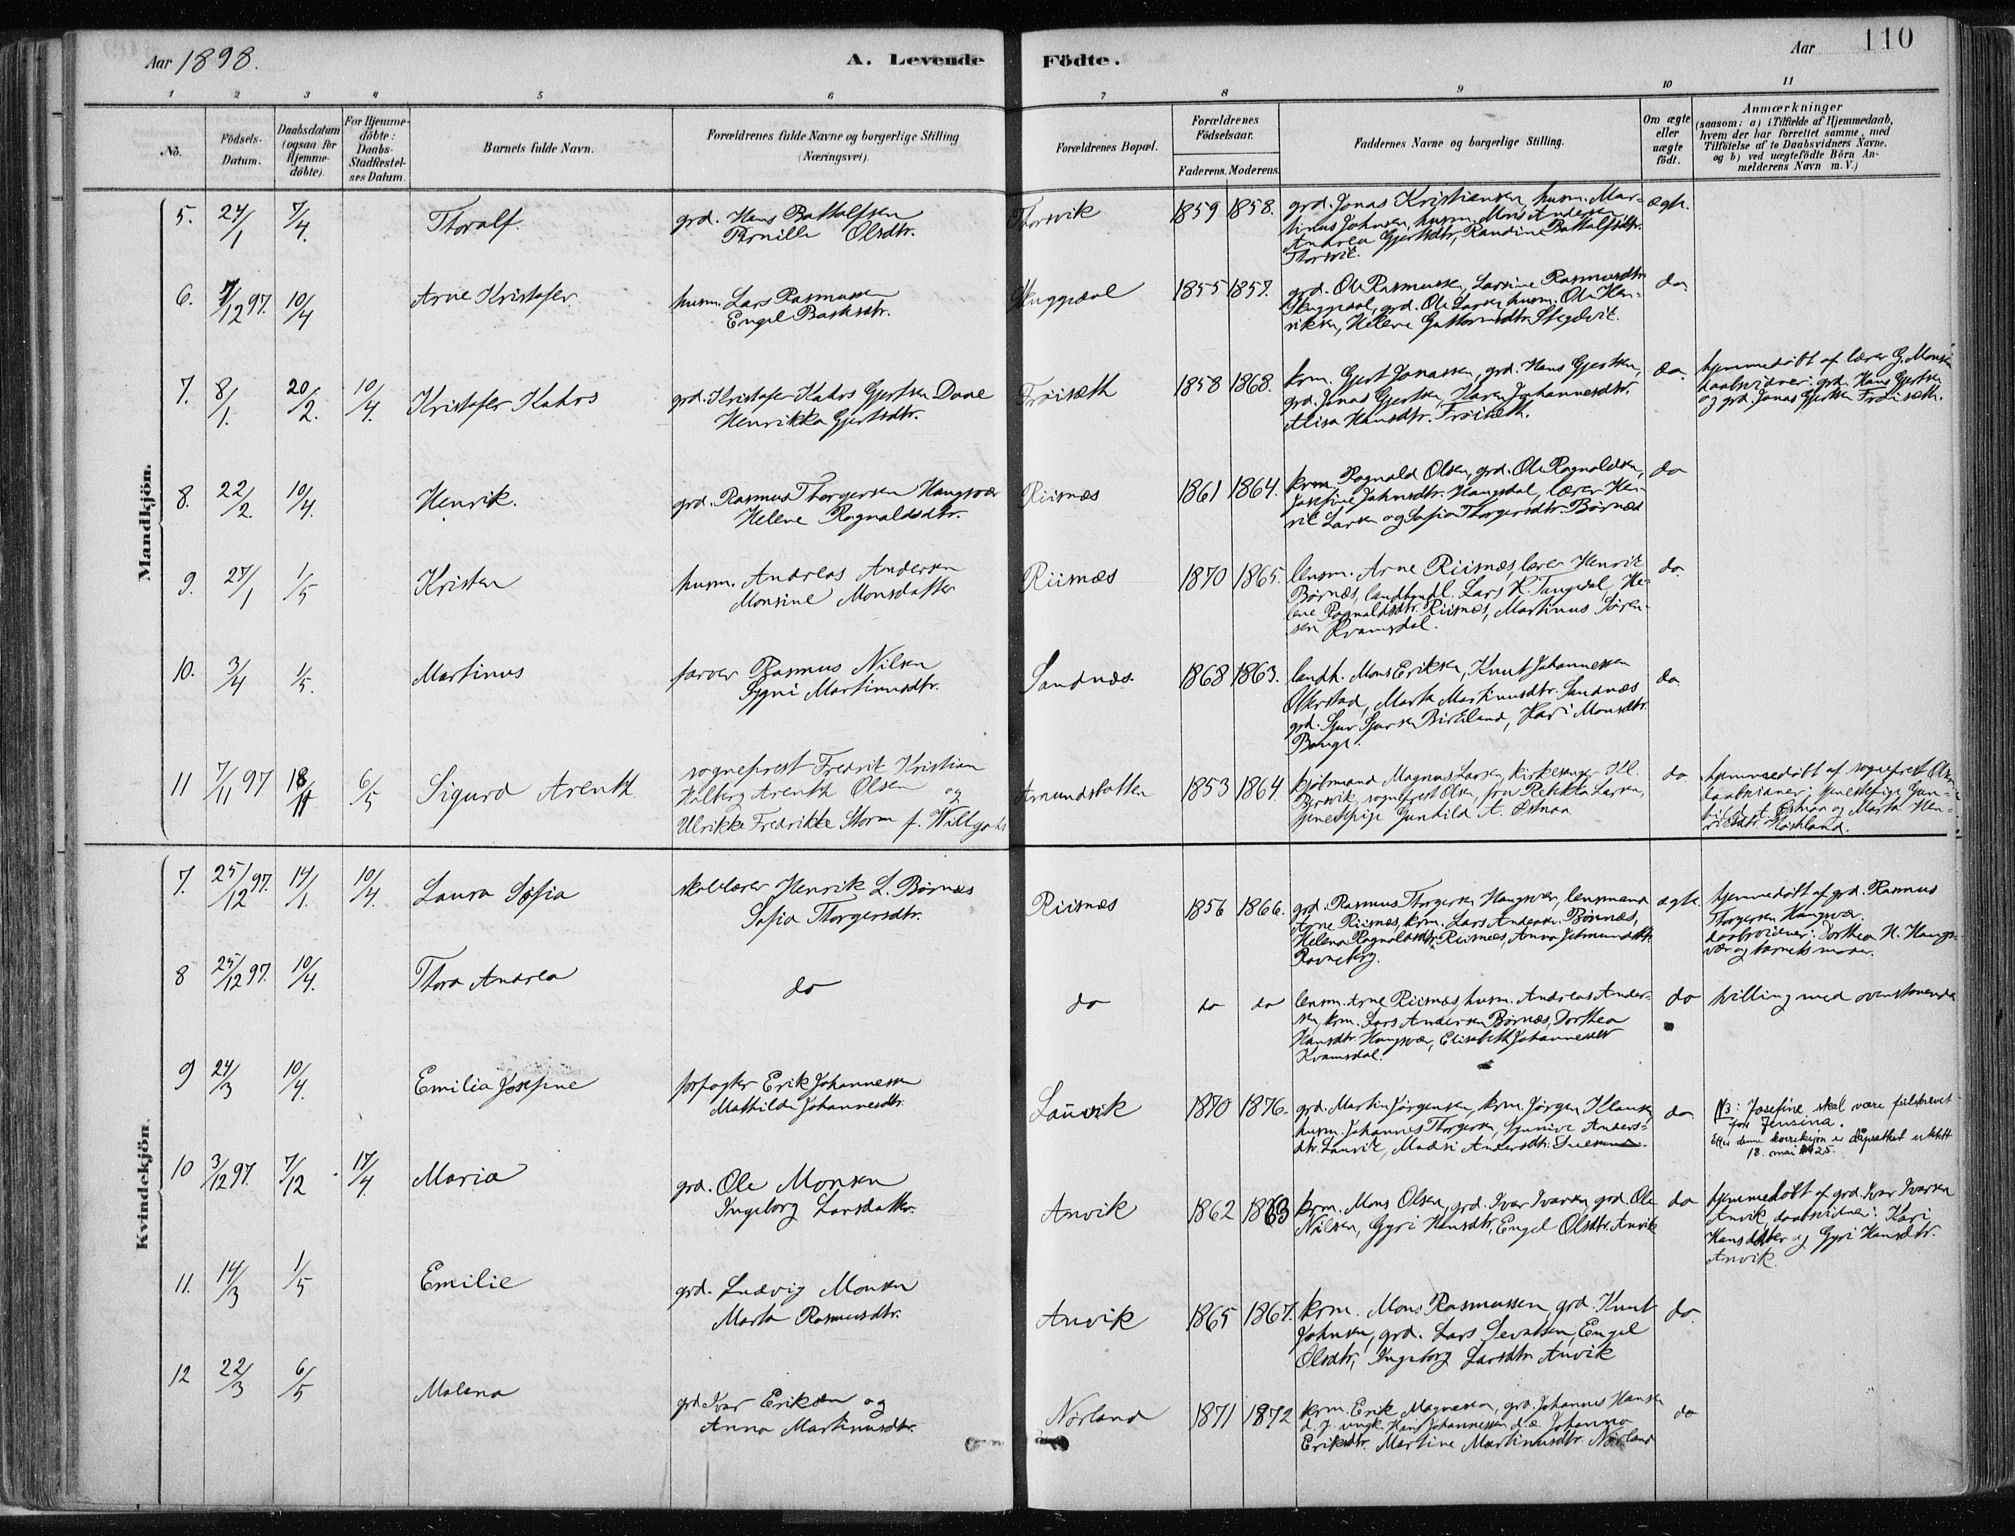 Aar 1898.
A. Levende Födte.
Aar
110
1 2 3 4 5 6 7 8 9 10 11
No.
Födsels-Datum.
Daabsdatum (ogsaa for Hjemmedöbte).
For Hjemmedöbte: Daabs-Stadfæstelses Datum.
Barnets fulde Navn.
Forældrenes fulde Navne og borgerlige Stilling (Næringsvei).
Forældrenes Bopæl.
Forældrenes Födselsaar.
Faderens. Moderens.
Faddernes Navne og borgerlige Stilling.
Om ægte eller uægte födt.
Anmærkninger
(saasom: a) i Tilfælde af Hjemmedaab,
hvem der har forrettet samme, med
Tilföielse af to Daabsvidners Navne,
og b) ved uægtefödte Börn Anmelderens Navn m. V.)
Mandkjön.
5. 24/1 7/4. Thoralf. grd. Hans Battolfsen
Pernille Olsdtr.
Thorsvik 1859 1858. grd. Jonas Kristiansen, husm. Mar-
tinus Johnsen, husm. Mons Andersen
Andrea Gjertsdtr, Randine Battolfsdtr.
Thorsvik.
ægte.
6. 7/12 97. 10/4 Arne Kristofer. husm. Lars Rasmussen
Engel Baarsdtr.
Skuggedal 1855 1857. grd. Ole Rasmussen, Larsine Rasmusdtr
Skuggedal, grd. Ole Larsen, husm. Ole Hen-
riksen, Helene Guttormsdtr.
do.
7. 8/1. 20/2. 10/4. Kristofer Kahrs grd. Kristofer Kahrs Gjertsen Daae
Henrikka Gjertsdtr.
Frøiseth 1858 1868. krm. Gjert Jonassen, grd. Hans Gjertsen,
grd. Jonas Gjertsen, Karen Johannesdtr.
Alisa Hansdtr. Frøiseth.
do. hjemmedøbt af lærer G. Monsen
daabsvidner: grd. Hans Gjertsen
og grd. Jonas Gjertsen Frøiseth.
8. 22/2 10/4. Henrik. grd. Rasmus Thorgersen Haugsvær
Helene Ragnaldsdtr.
Riisnæs 1861 1864. krm. Ragnald Olsen, grd. Ole Ragnaldsen,
Josefine Jahnsdtr. Haugsdal, lærer Hen-
rik Larsen og Sofia Thorgersdtr. Børnæs
do
9. 27/1 1/5 Kristen husm. Andreas Andersen
Monsine Monsdatter
Riisnæs 1870 1865. lensm. Arne Riisnæs, lærer Henrik
Børnæs, landhandl. Lars K. Tangedal, He-
lene Ragnaldsdtr. Riisnæs, Martinus Søren-
sen Kvamsdal.
do.
10. 3/4 1/5. Martinus farver Rasmus Nilsen
Gyri Martinusdtr.
Sandnæs. 1868 1863. landh. Mons Eriksen, Knut Johannessen
Marta Martinusdtr. Sandnæs
grd. Sjur Sjursen Birkeland, Kari Monsdtr.
do.
11 7/11 97 18/11 6/5 Sigurd Arentz sogneprest Fredrik Kristian
Holberg Arentz Olsen og
Ulrikke Fredrikke Storm f. Willgohs
Amundstotten 1853 1864. kjøbmand Magnus Larsen, kirkesanger Kl.
sogneprest Olsen, fru Rebekka Larsen,
tjenestepige Gunhild A. Østnaa
do. hjemmedøbt af sogneprest Olsen
daabsvidner: tjenestepige Gun-
hild A. Østnaa og Marta Hen-
riksdtr.
Kvindekjön.
7. 25/12 97. 14/1. 10/4. Laura Sofia skolelærer Henrik L. Børnæs
Sofia Thorgersdtr.
Riisnæs 1856 1866. grd. Rasmus Thorgersen Haugsvær, lensmand
Arne Riisnæs, krm. Lars Andersen Børnæs,
Helena Ragnaldsdtr. Riisnæs, Anna
ægte. hjemmedøbt af grd. Rasmus
Thorgersen Haugsvær.
daabsvidner: Dorthea H. Haugs-
vær og barnets moder.
8 25/12 97. 10/4. Thora Andrea do
do do do lensm. Arne Riisnæs, husm. Andreas Ander-
sen, krm. Lars Andersen Børnæs, Dorthea
Hansdtr. Haugsvær, Elisabeth Johannesdtr
Kvamsdal.
do tvilling med ovenstaaende
9 24/3 10/4. Emilia Josefine forpagter Erik Johannessen
Mathilde Johannesdtr.
Lauvik 1870 1876. grd. Martin Jörgensen, krm. Jörgen Klausen,
husm. Johannes Thorgersen, Synnive Anders-
dtr. Lauvik, Madsi Andersdtr.
do NB: Josefine skal være feilskrevet
for Jensina.
Efter denne korreksjon er dåpsattest utstedt
18. mai 1925.
10 3/12 97. 7/12 17/4. Maria grd. Ole Monsen
Ingeborg Larsdatter.
Anvik 1862 1863 krm. Mons Olsen, grd. Ivar Ivarsen, grd. Ole
Nilsen, Gyri Hansdtr, Engel Olsdtr. Anvik
do hjemmedøbt af grd. Ivar Ivarsen
Anvik daabsvidner: Kari
Hansdatter og Gyri Hansdtr.
Anvik.
11. 14/3 1/5 Emilie grd. Ludvig Monsen
Marta Rasmusdtr.
Anvik 1865 1867. krm. Mons Rasmussen, grd. Knut
Johnsen, grd. Lars Sevatsen, Engel
Olsdtr, Ingeborg Larsdtr. Anvik
do.
12 22/3 6/5 Malena grd. Ivar Eriksen og
Anna Martinusdtr.
Nørland 1871 1872 krm. Erik Magnesen, grd. Johannes Hansen
d. y. ungk. Hans Johannessen d. æ. Johanna
Eriksdtr. Martine Martinusdtr. Nørland
do